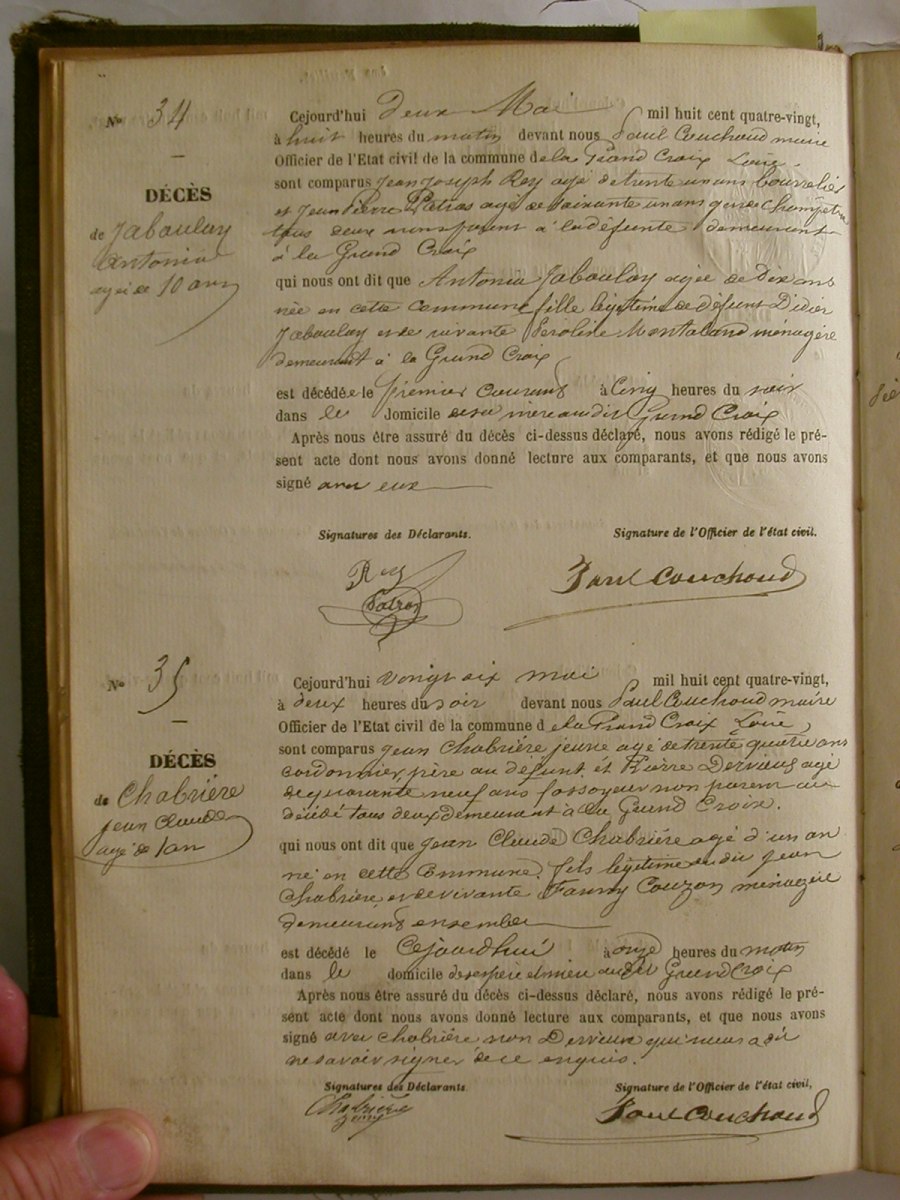 Nº 34
DÉCÈS
de Jaboulay
Antonia
agée de 10 ans
Cejourd'hui deux Mai mil huit cent quatre-vingt,
à huit heures du matin devant nous Paul Couchoud maire
Officier de l'Etat civil de la commune de la Grand Croix Loire,
sont comparus Jean Joseph Rey agé de trente un ans bourrelier
et Jean Pierre Petras agé de soixante un ans garde champêtre
tous deux non parent à la défunte demeurant
à la Grand Croix
qui nous ont dit que Antonia Jaboulay agée de Dix ans
née en cette commune fille légitime de défunt Didier
Jaboulay et de vivante Montaland ménagère
demeurant à la Grand Croix
est décédée le premier courant à Cinq heures du soir
dans le domicile de sa mère au dit Grand Croix
Après nous être assuré du décès ci-dessus déclaré, nous avons rédigé le pré-
sent acte dont nous avons donné lecture aux comparants, et que nous avons
signé avec eux
Signatures des Déclarants. Signature de l'Officier de l'état civil.
Rey Paul Couchoud
Nº 35
DÉCÈS
de Chabrière
jean claude
agé de 1 an
Cejourd'hui vingt six mai mil huit cent quatre-vingt,
à deux heures du soir devant nous Paul Couchoud maire
Officier de l'Etat civil de la commune de la Grand Croix Loire,
sont comparus jean Chabrière jeune agé de trente quatre ans
cordonnier, père au défunt, et Pierre Dervieux agé
de quarante neuf ans fossoyeur non parent au
décédé tous deux demeurant à La Grand Croix.
qui nous ont dit que jean Claude Chabrière agé d'un an
né en cette Commune. fils légitime du dit jean
Chabrière et de vivante Fanny Couzon ménagère
demeurant ensemble
est décédé le Cejourdhui à onze heures du matin
dans le domicile de ses père et mère au dit Grand Croix
Après nous être assuré du décès ci-dessus déclaré, nous avons rédigé le pré-
sent acte dont nous avons donné lecture aux comparants, et que nous avons
signé avec Chabrière non Dervieux qui nous a dit
ne savoir signer de ce enquis.
Signatures des Déclarants Signature de l'Officier de l'état civil,
Chabrière Paul Couchoud
jeune